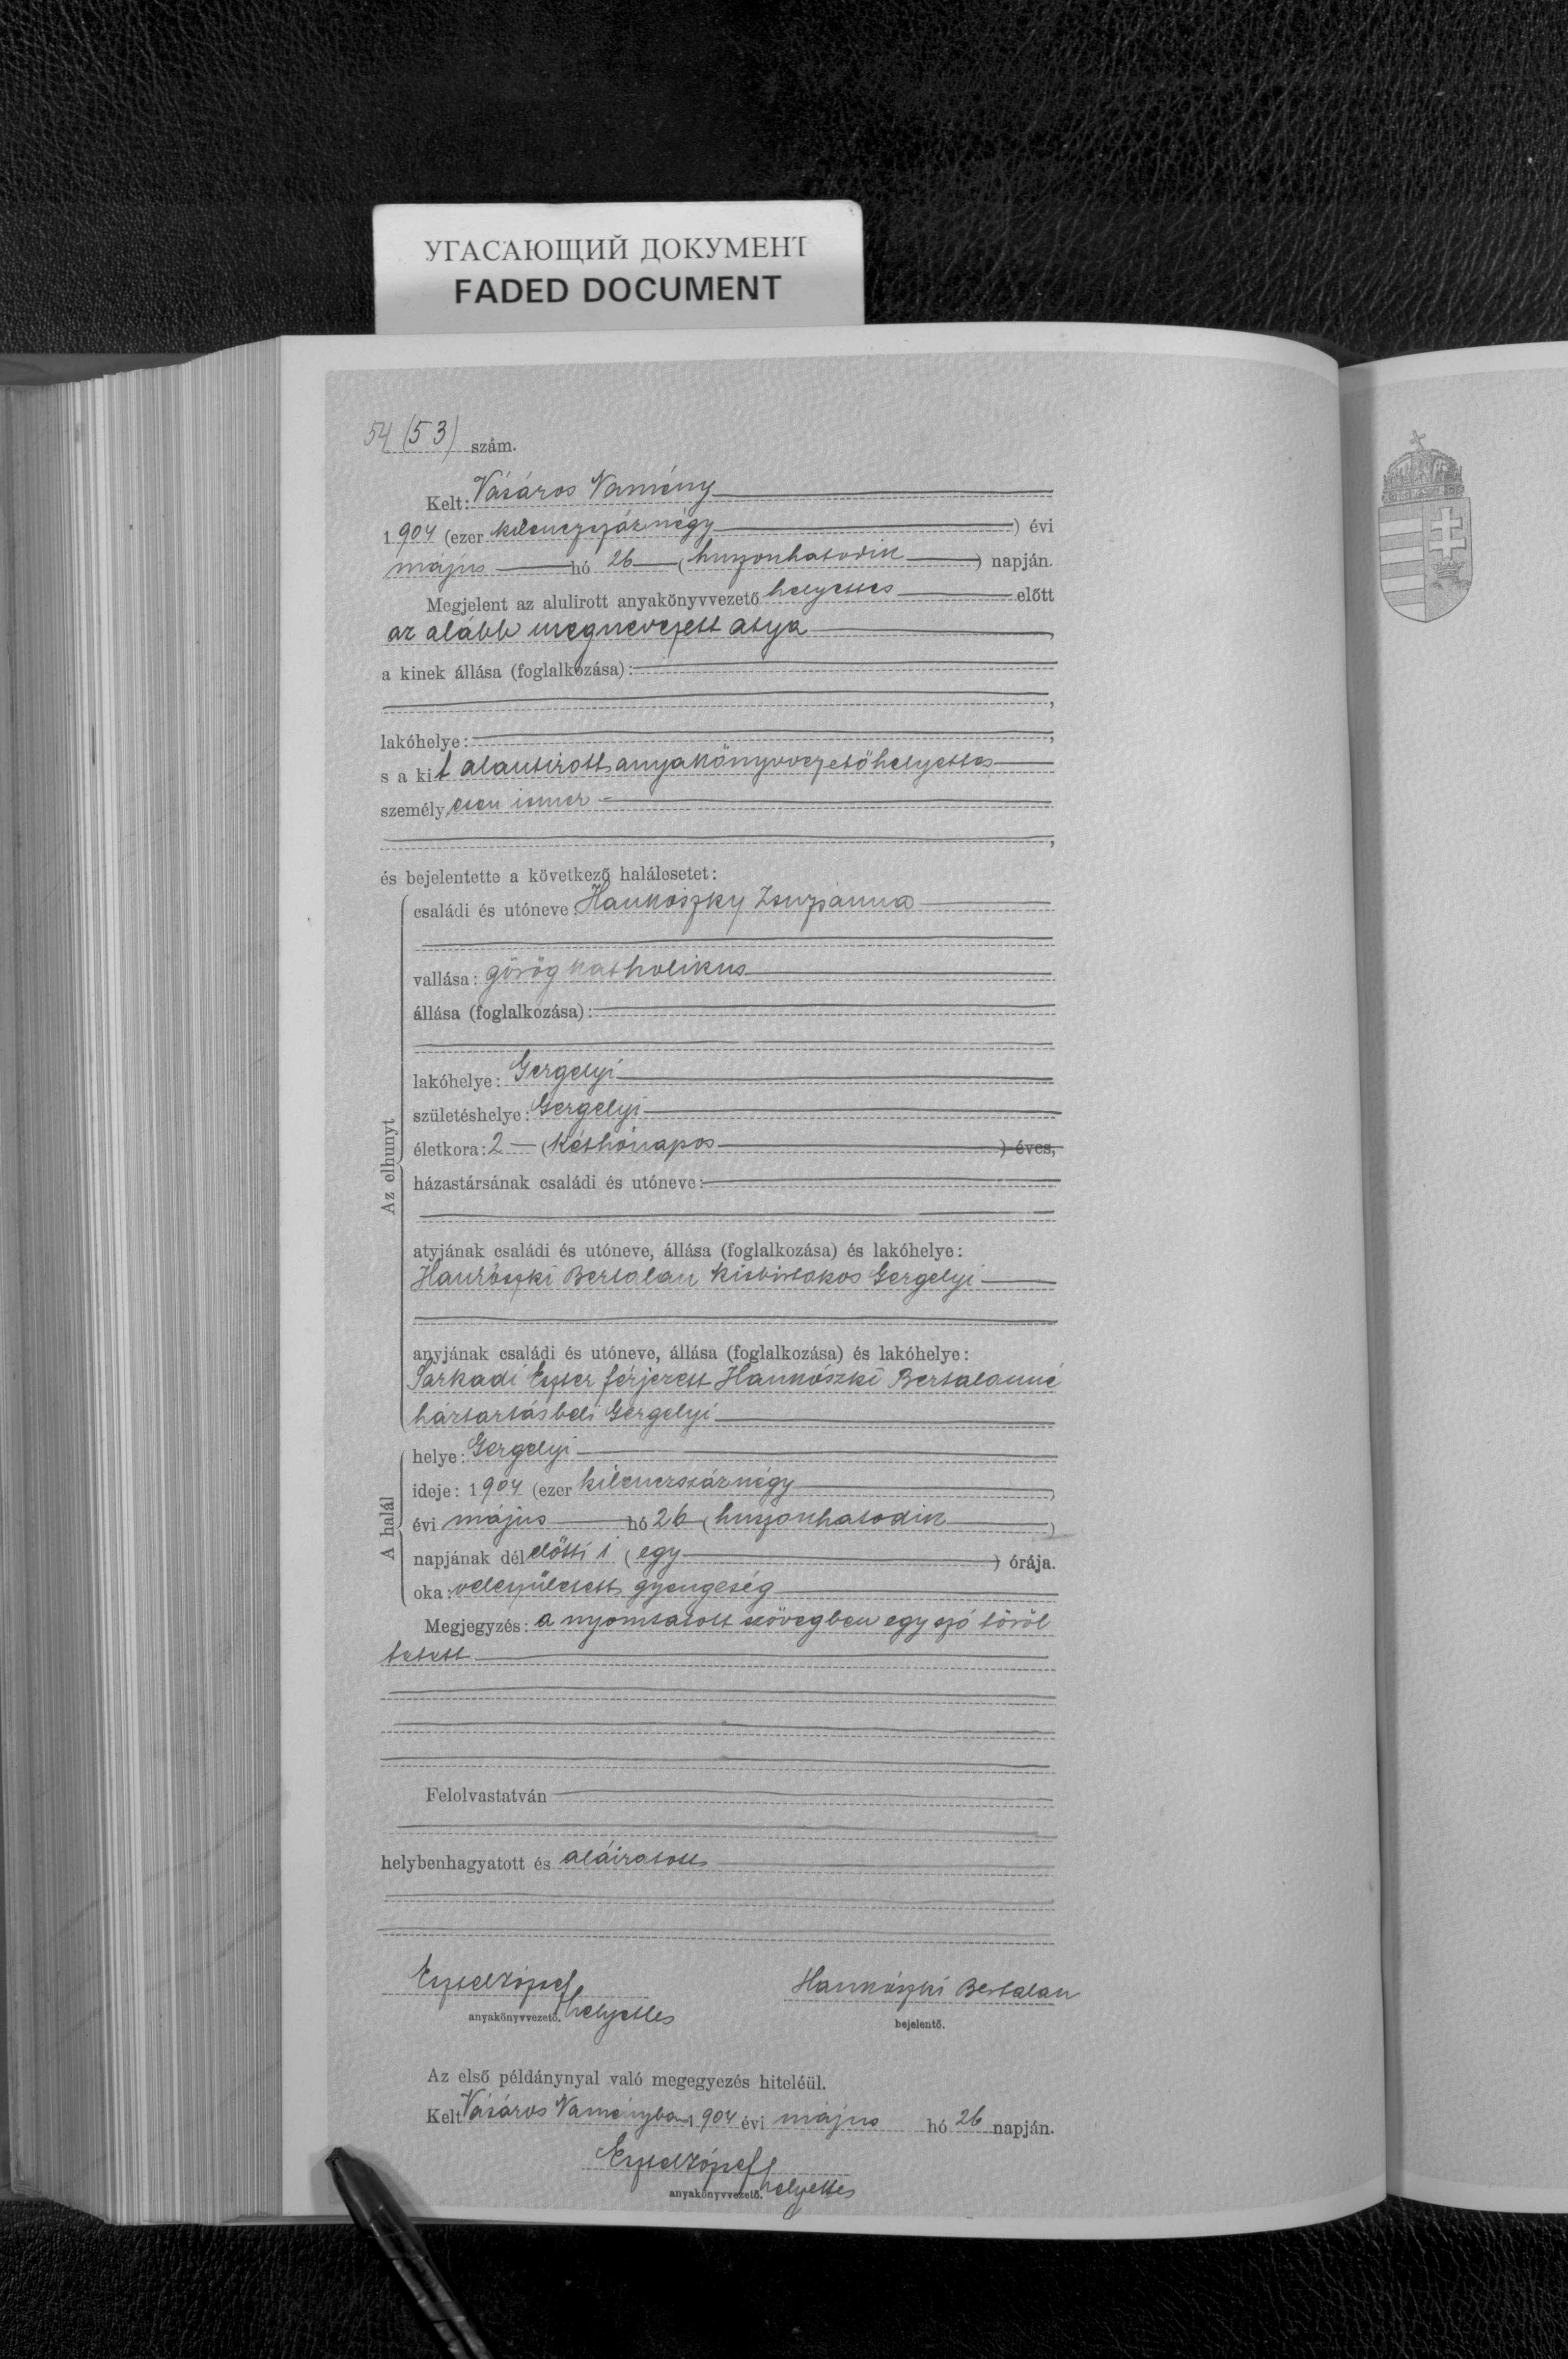 УГАСАЮЩИЙ ДОКУМЕНТ
FADED DOCUMENT
54 (53) szám.
Kelt: Vásáros Namény
1904 (ezer kilenczszáznégy ) évi
május hó 26 (huszonhatodik ) napján.
Megjelent az alulirott anyakönyvvezető helyettes előtt
az alább megnevezett atya ,
a kinek állása (foglalkozása):
,
lakóhelye: ,
s a kit alantirott anyakönyvvezetőhelyettes
személyesen ismer
,
és bejelentette a következő halálesetet:
Az elhunyt
családi és utóneve: Hankószky Zsuzsánna
vallása: görög katholikus
állása (foglalkozása):
lakóhelye: Gergelyi
születéshelye: Gergelyi
életkora: 2 (két hónapos ) éves,
házastársának családi és utóneve:
atyjának családi és utóneve, állása (foglalkozása) és lakóhelye:
Hankószki Bertalan kisbirtokos Gergelyi
anyjának családi és utóneve, állása (foglalkozása) és lakóhelye:
Sarkadi Eszter férjezett Hankószki Bertalanné
háztartásbeli Gergelyi
A halál
helye: Gergelyi
ideje: 1904 (ezer kilenczszáznégy )
évi május hó 26 (huszonhatodik )
napjának dél előtti 1 (egy ) órája.
oka: veleszületett gyengeség
Megjegyzés: a nyomtatott szövegben egy szó töröl
tetett
Felolvastatván
helybenhagyatott és aláiratott
Hankószki Bertalan
anyakönyvvezető. helyettes
bejelentő.
Az első példánynyal való megegyezés hiteléül.
Kelt Vásáros Naményba 1904 évi május hó 26 napján.
anyakönyvvezető. helyettes